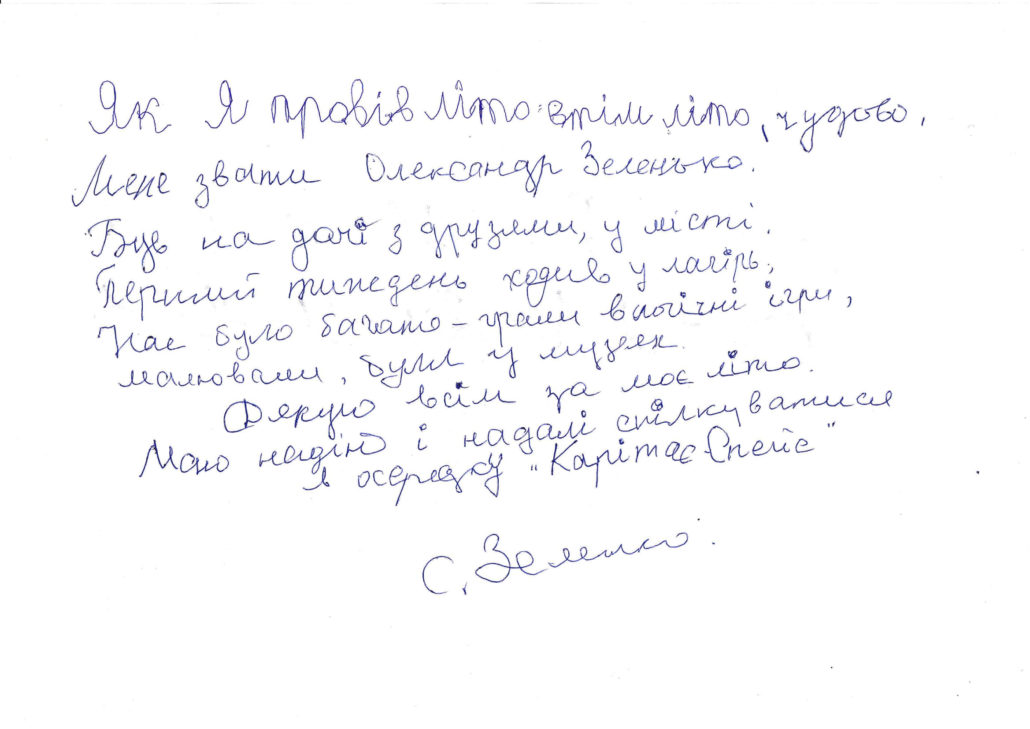 Як Я провів літо втім літо, чудово.
Мене звати Олександр Зеленько.
Був на дачі з друзями, у місті.
Перший тиждень ходив у лагірь,
Нас було багато - грали в логічні ігри,
малювали, були у музеях.
Дякую всім за моє літо.
Маю надію і надалі спілкуватися
в осередку "Карітас Спейс"
С. Зеленько.